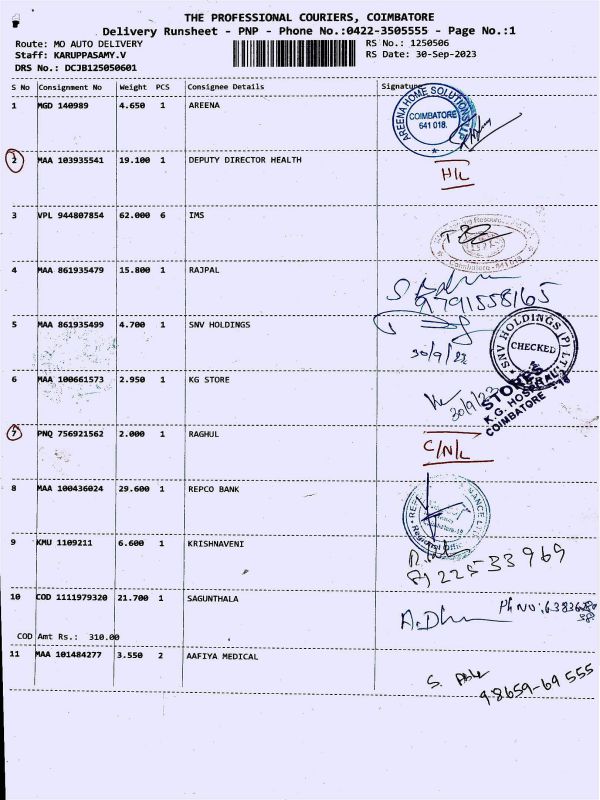 THE PROFESSIONAL COURIERS, COIMBATORE
Delivery Runsheet - PNP - Phone No.:0422-3505555 - Page No.:1
Route: MO AUTO DELIVERY RS No.: 1250506
Staff: KARUPPASAMY.V RS Date: 30-Sep-2023
DRS No.: DCJB125050601
S No Consignment No Weight PCS Consignee Details Signature
1 MGD 140989 4.650 1 AREENA
AREENA HOME SOLUTIONS LLP
COIMBATORE
641 018.
2 MAA 103935541 19.100 1 DEPUTY DIRECTOR HEALTH H/L
3 VPL 944807854 62.000 6 IMS
Coimbatore - 641 018
4 MAA 861935479 15.800 1 RAJPAL
9791558165
5 MAA 861935499 4.700 1 SNV HOLDINGS
30/9/23
SNV HOLDINGS (P) LTD
CHECKED
6 MAA 100661573 2.950 1 KG STORE
30/9/23
STORES
K.G. HOSPITAL
COIMBATORE - 18
7 PNQ 756921562 2.000 1 RAGHUL C/N/L
8 MAA 100436024 29.600 1 REPCO BANK
Coimbatore-18
Regional Office
9 KMU 1109211 6.600 1 KRISHNAVENI
10 COD 1111979320 21.700 1 SAGUNTHALA
Ph No:
COD Amt Rs.: 310.00
11 MAA 101484277 3.550 2 AAFIYA MEDICAL
98659-69555